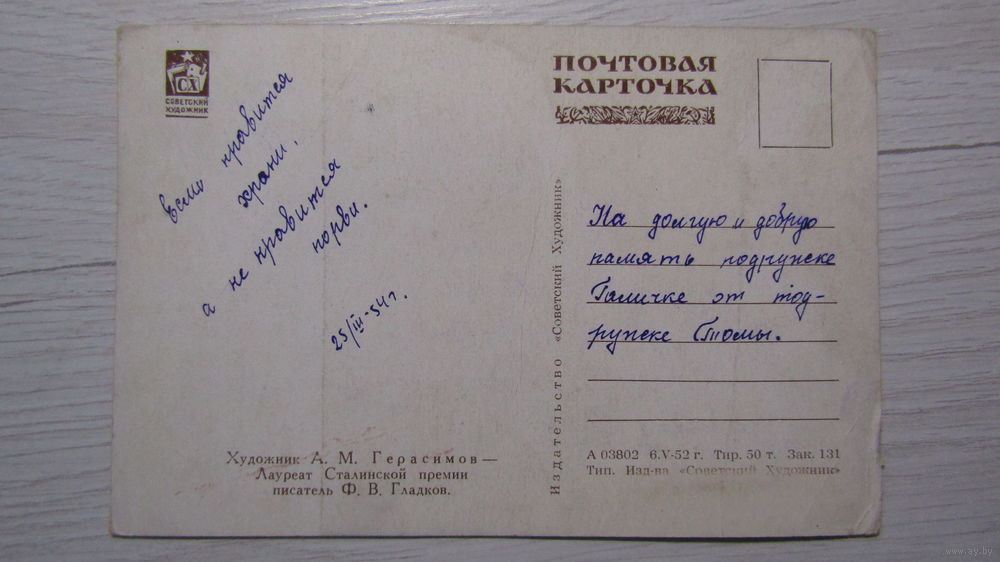 СХ
СОВЕТСКИЙ
ХУДОЖНИК
Если нравится
храни,
а не нравится
порви.
25/III-54 г.
Художник А. М. Герасимов —
Лауреат Сталинской премии
писатель Ф. В. Гладков.
Издательство «Советский Художник»
ПОЧТОВАЯ
КАРТОЧКА
На долгую и добрую
память подружке
Галичке от под-
ружке Томы.
А 03802 6.V-52 г. Тир. 50 т. Зак. 131
Тип. Изд-ва «Советский Художник»
www.ay.by